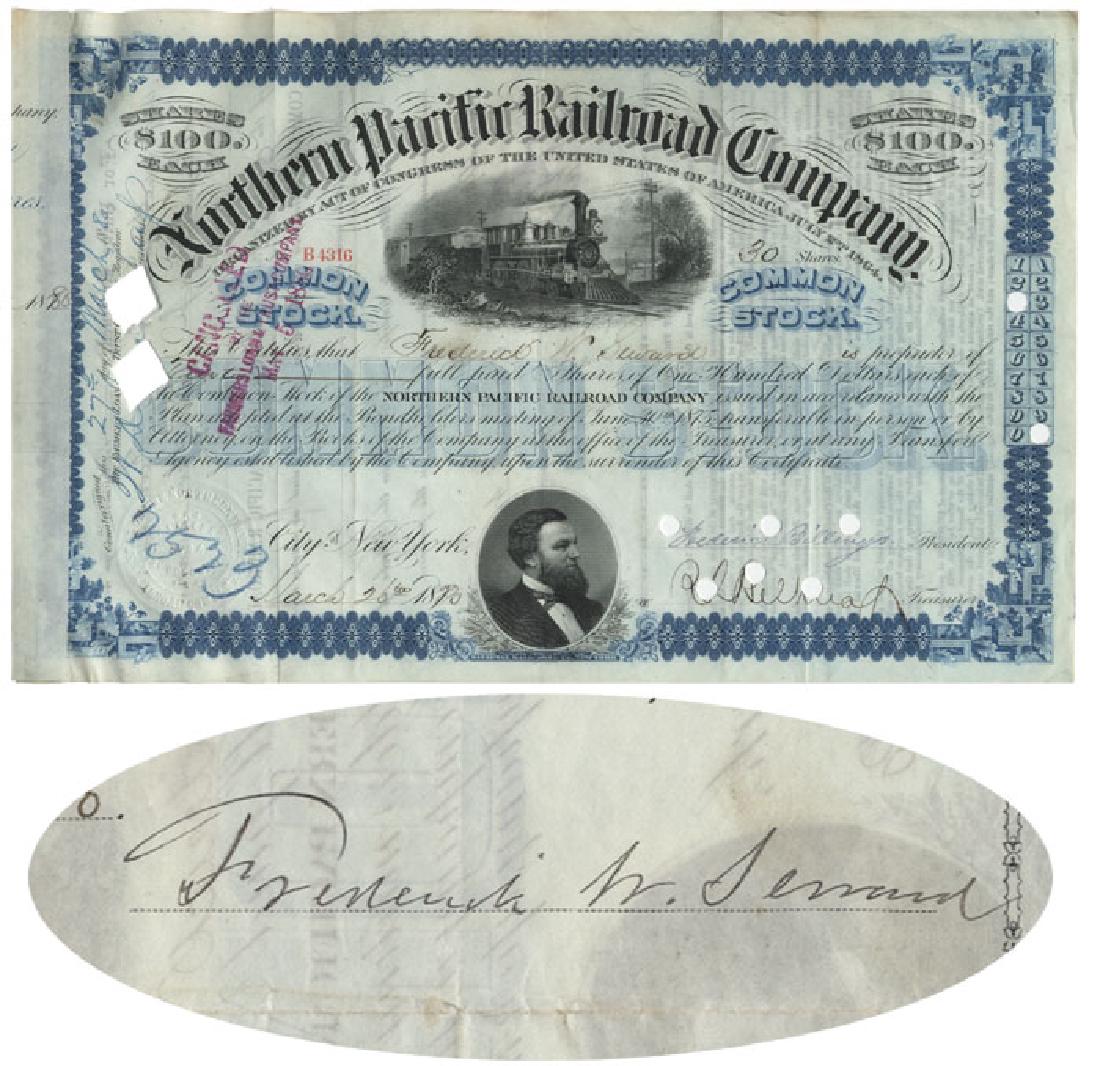 hany.
res.
1880
SHARES
$100.
EACH
SHARES
$100.
EACH
Northern Pacific Railroad Company.
ORGANIZED BY ACT OF CONGRESS OF THE UNITED STATES OF AMERICA, JULY 2ND 1864.
B 4316
30 Shares
COMMON STOCK.
COMMON STOCK.
CANCELLED
FARMERS LOAN & TRUST COMPANY
This Certifies that Frederick W. Seward is proprietor of
full paid Shares of One Hundred Dollars each of
the Common Stock of the NORTHERN PACIFIC RAILROAD COMPANY issued in accordance with the
Plan adopted at the Bondholders meeting of June 30th 1875, transferable in person or by
Attorney on the Books of the Company at the office of the Treasurer, or at any Transfer
Agency established by the Company upon the surrender of this Certificate
COMMON STOCK
Countersigned
27th
March
2523
City of New York,
March 26th 1880
Frederick Billings President
Treasurer
o.
Frederick W. Seward